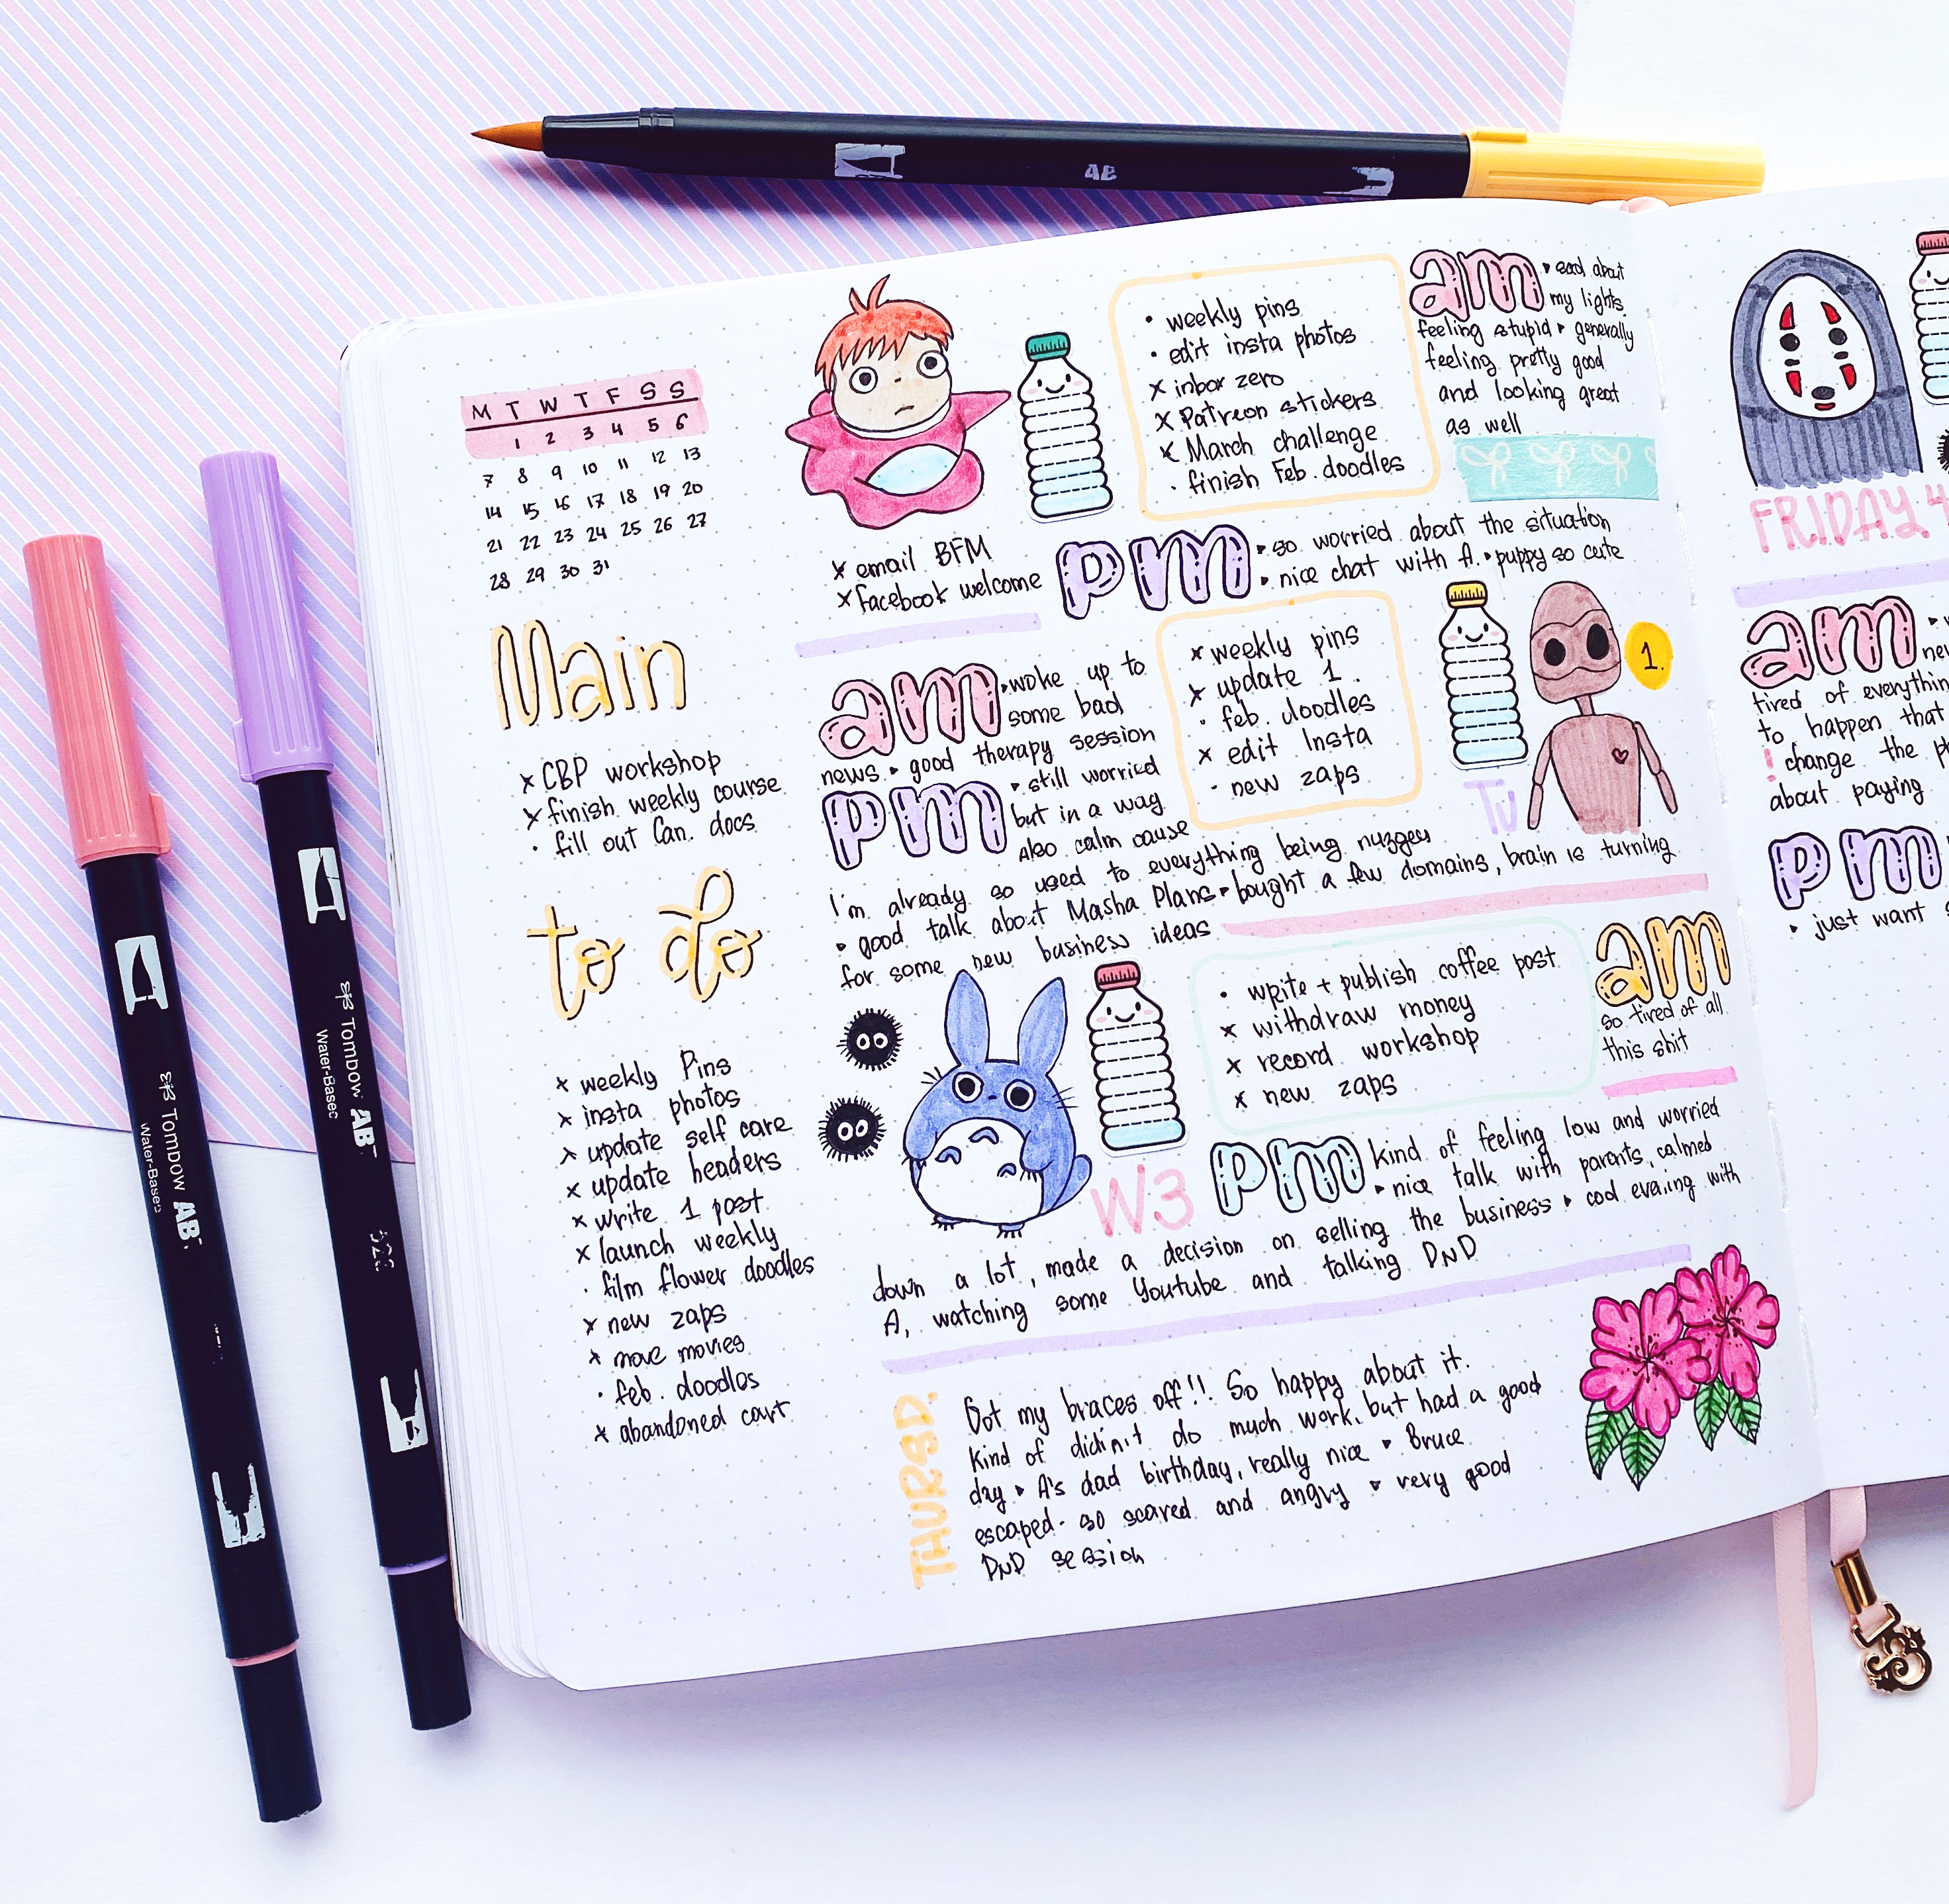 AB
M T W T F S S
1 2 3 4 5 6
7 8 9 10 11 12 13
14 15 16 17 18 19 20
21 22 23 24 25 26 27
28 29 30 31
Main
x CBP workshop
x finish weekly course
· fill out Can. docs
to do
x weekly Pins
x insta photos
x update self care
x update headers
x write 1 post
x launch weekly
· film flower doodles
x new zaps
x move movies
· feb. doodles
x abandoned cart
• weekly pins
· edit insta photos
x inbox zero
x Patreon stickers
x March challenge
· finish Feb. doodles
x email BFM
x facebook welcome
am
sad about
my lights
feeling stupid ▸ generally
feeling pretty good
and looking great
as well
pm
▸ so worried about the situation
▸ nice chat with A. ▸ puppy so cute
am
▸ woke up to
some bad
news ▸ good therapy session
pm
▸ still worried
but in a way
also calm cause
I'm already so used to everything being
▸ good talk about Masha Plans ▸ bought a few domains, brain is turning
for some new business ideas
x weekly pins
x update 1.
· feb. doodles
x edit Insta
· new zaps
Tu
1.
• write + publish coffee post
x withdraw money
x record workshop
x new zaps
am
so tired of all
this shit
W3
pm
kind of feeling low and worried
▸ nice talk with parents, calmed
down a lot, made a decision on selling the business ▸ cool evening with
A, watching some Youtube and talking DND
THURSD.
Got my braces off!!. So happy about it.
Kind of didin't do much work, but had a good
day ▸ A's dad birthday, really nice ▸ Bruce
escaped - so scared and angry ▸ very good
DND session
FRIDAY 4
am
tired of everything
to happen that
! change the
about paying
pm
▸ just want
Tombow AB
Water-Based
Tombow AB
Water-Based